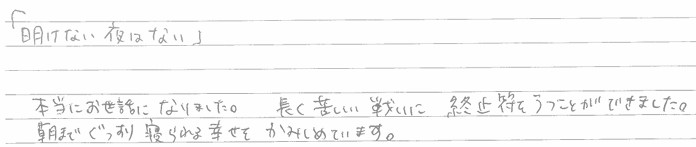 「明けない夜はない」
本当にお世話になりました。 長く苦しい戦いに 終止符をうつことができました。
朝までぐっすり寝られる幸せを かみしめています。